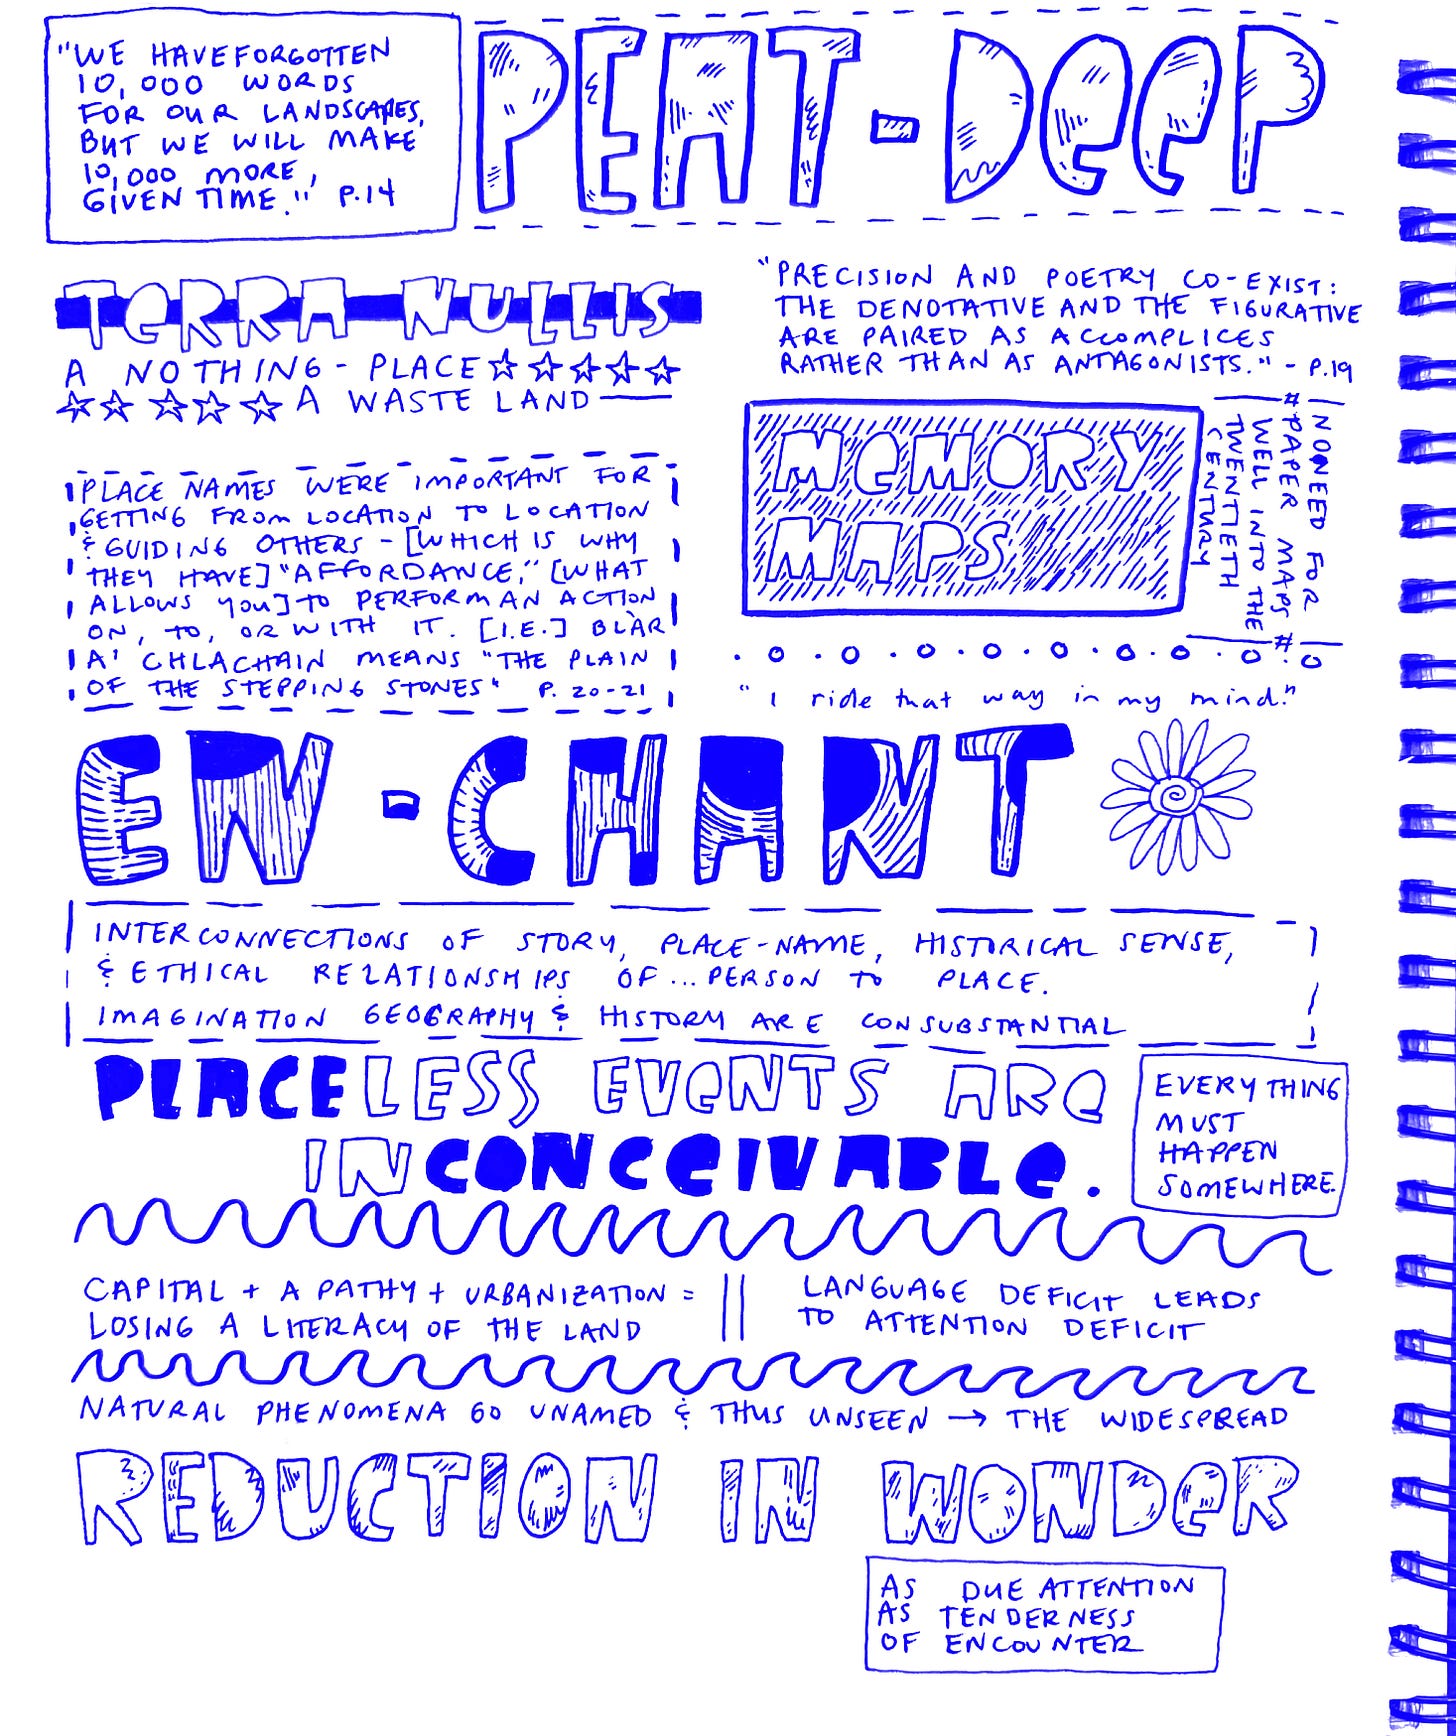 "WE HAVE FORGOTTEN
10,000 WORDS
FOR OUR LANDSCAPES,
BUT WE WILL MAKE
10,000 MORE,
GIVEN TIME." P.14
PEAT-DEEP
TERRA NULLIS
A NOTHING-PLACE
A WASTE LAND
"PRECISION AND POETRY CO-EXIST:
THE DENOTATIVE AND THE FIGURATIVE
ARE PAIRED AS ACCOMPLICES
RATHER THAN AS ANTAGONISTS." - P.19
PLACE NAMES WERE IMPORTANT FOR
GETTING FROM LOCATION TO LOCATION
& GUIDING OTHERS - [WHICH IS WHY
THEY HAVE] "AFFORDANCE," [WHAT
ALLOWS YOU] TO PERFORM AN ACTION
ON, TO, OR WITH IT. [I.E.] BLÀR
A' CHLACHAIN MEANS "THE PLAIN
OF THE STEPPING STONES" P. 20-21
MEMORY
MAPS
NO NEED FOR
#PAPER MAPS#
WELL INTO THE
TWENTIETH
CENTURY
"I ride that way in my mind."
EN-CHANT
INTERCONNECTIONS OF STORY, PLACE-NAME, HISTORICAL SENSE,
& ETHICAL RELATIONSHIPS OF... PERSON TO PLACE.
IMAGINATION GEOGRAPHY & HISTORY ARE CONSUBSTANTIAL
PLACELESS EVENTS ARE
INCONCEIVABLE.
EVERYTHING
MUST
HAPPEN
SOMEWHERE.
CAPITAL + APATHY + URBANIZATION =
LOSING A LITERACY OF THE LAND
LANGUAGE DEFICIT LEADS
TO ATTENTION DEFICIT
NATURAL PHENOMENA GO UNAMED & THUS UNSEEN → THE WIDESPREAD
REDUCTION IN WONDER
AS DUE ATTENTION
AS TENDERNESS
OF ENCOUNTER